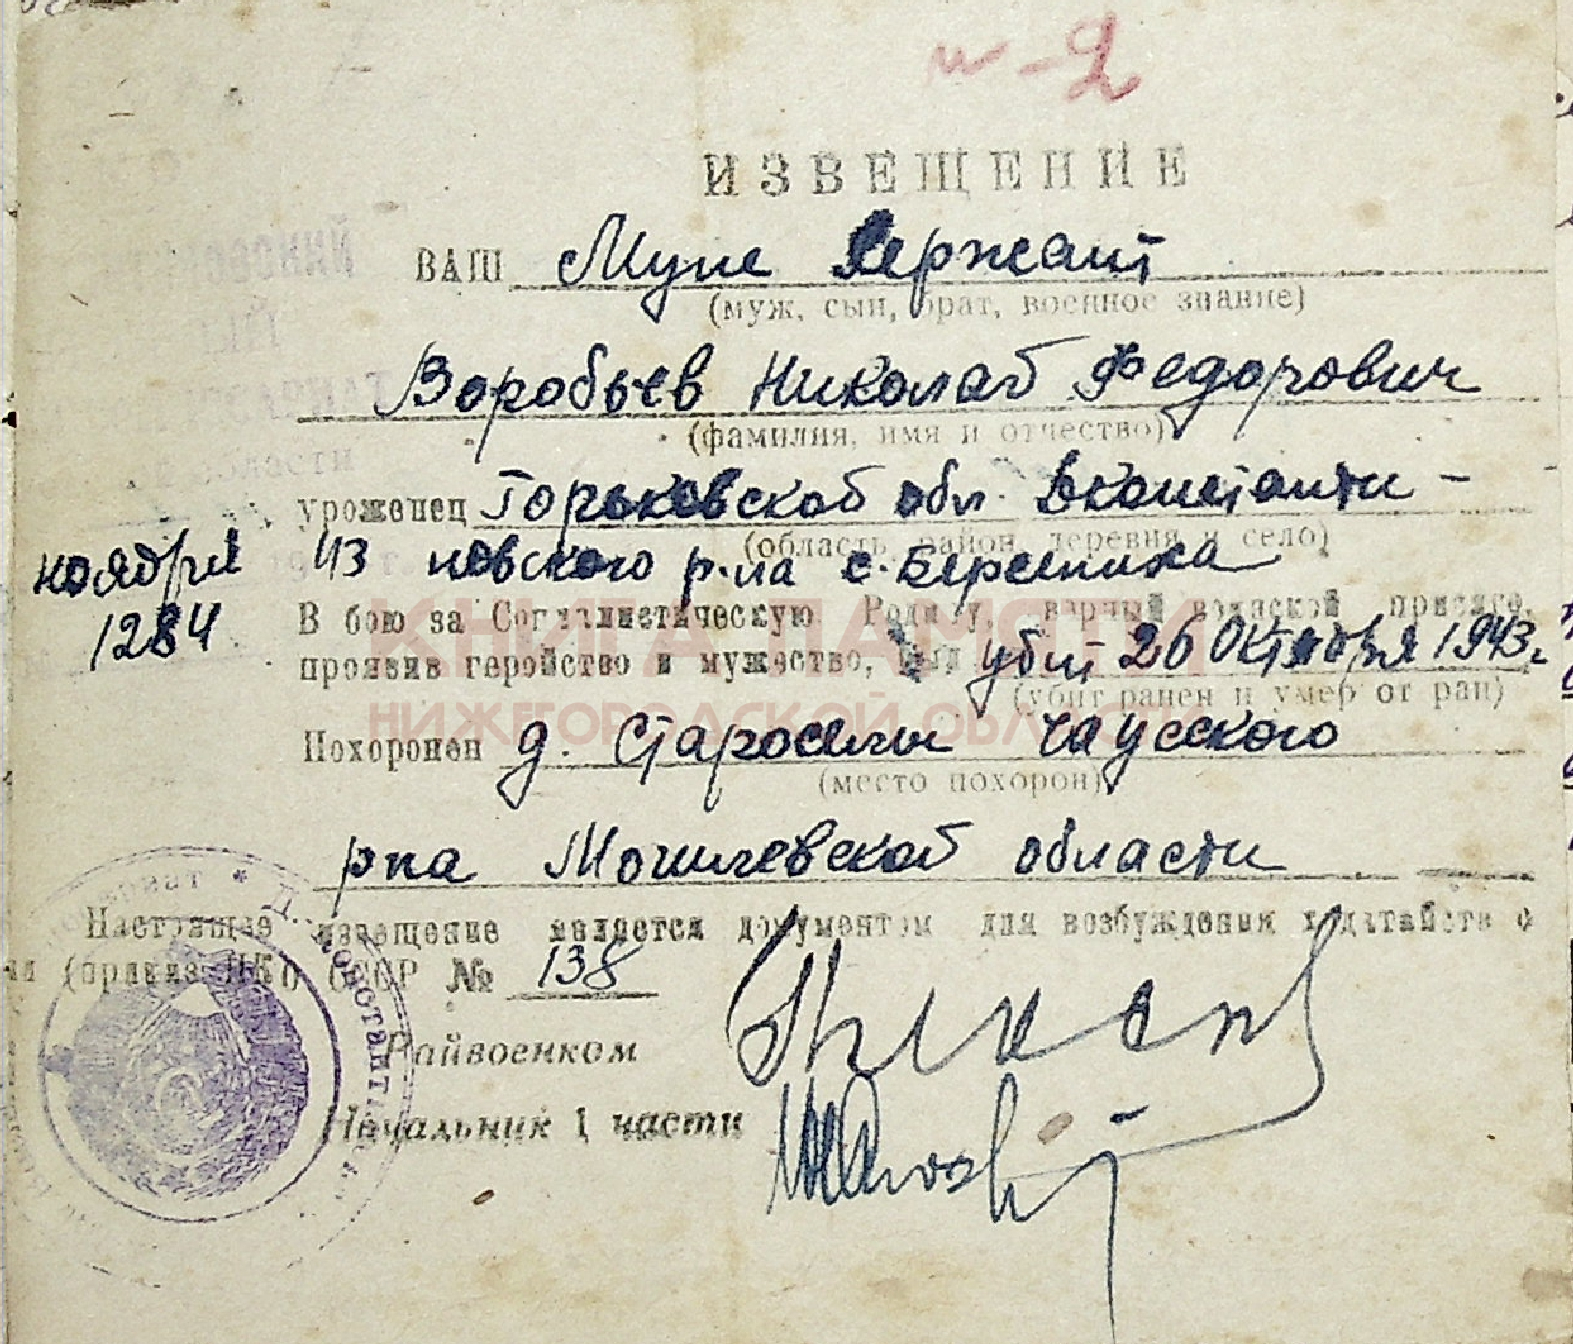 м-2
ИЗВЕЩЕНИЕ
ВАШ Муж Сержант
(муж, сын, брат, военное звание)
Воробьев Николай Федорович
(фамилия, имя и отчество)
области
уроженец Горьковской обл. Дконстанти-
(область, район, деревня и село)
ноября 43 новского р-на с. Березники
1284
В бою за Социалистическую Родину, верный воинской присяге,
проявив геройство и мужество, был убит 26 октября 1943г.
(убит ранен и умер от ран)
КНИГА ПАМЯТИ
НИЖЕГОРОДСКОЙ ОБЛАСТИ
Похоронен д. Старосельи Чаусского
(место похорон)
рна Могилевской области
Настоящее извещение является документом для возбуждения ходатайств о
(приказ НКО СССР № 138
Райвоенком
Начальник 1 части